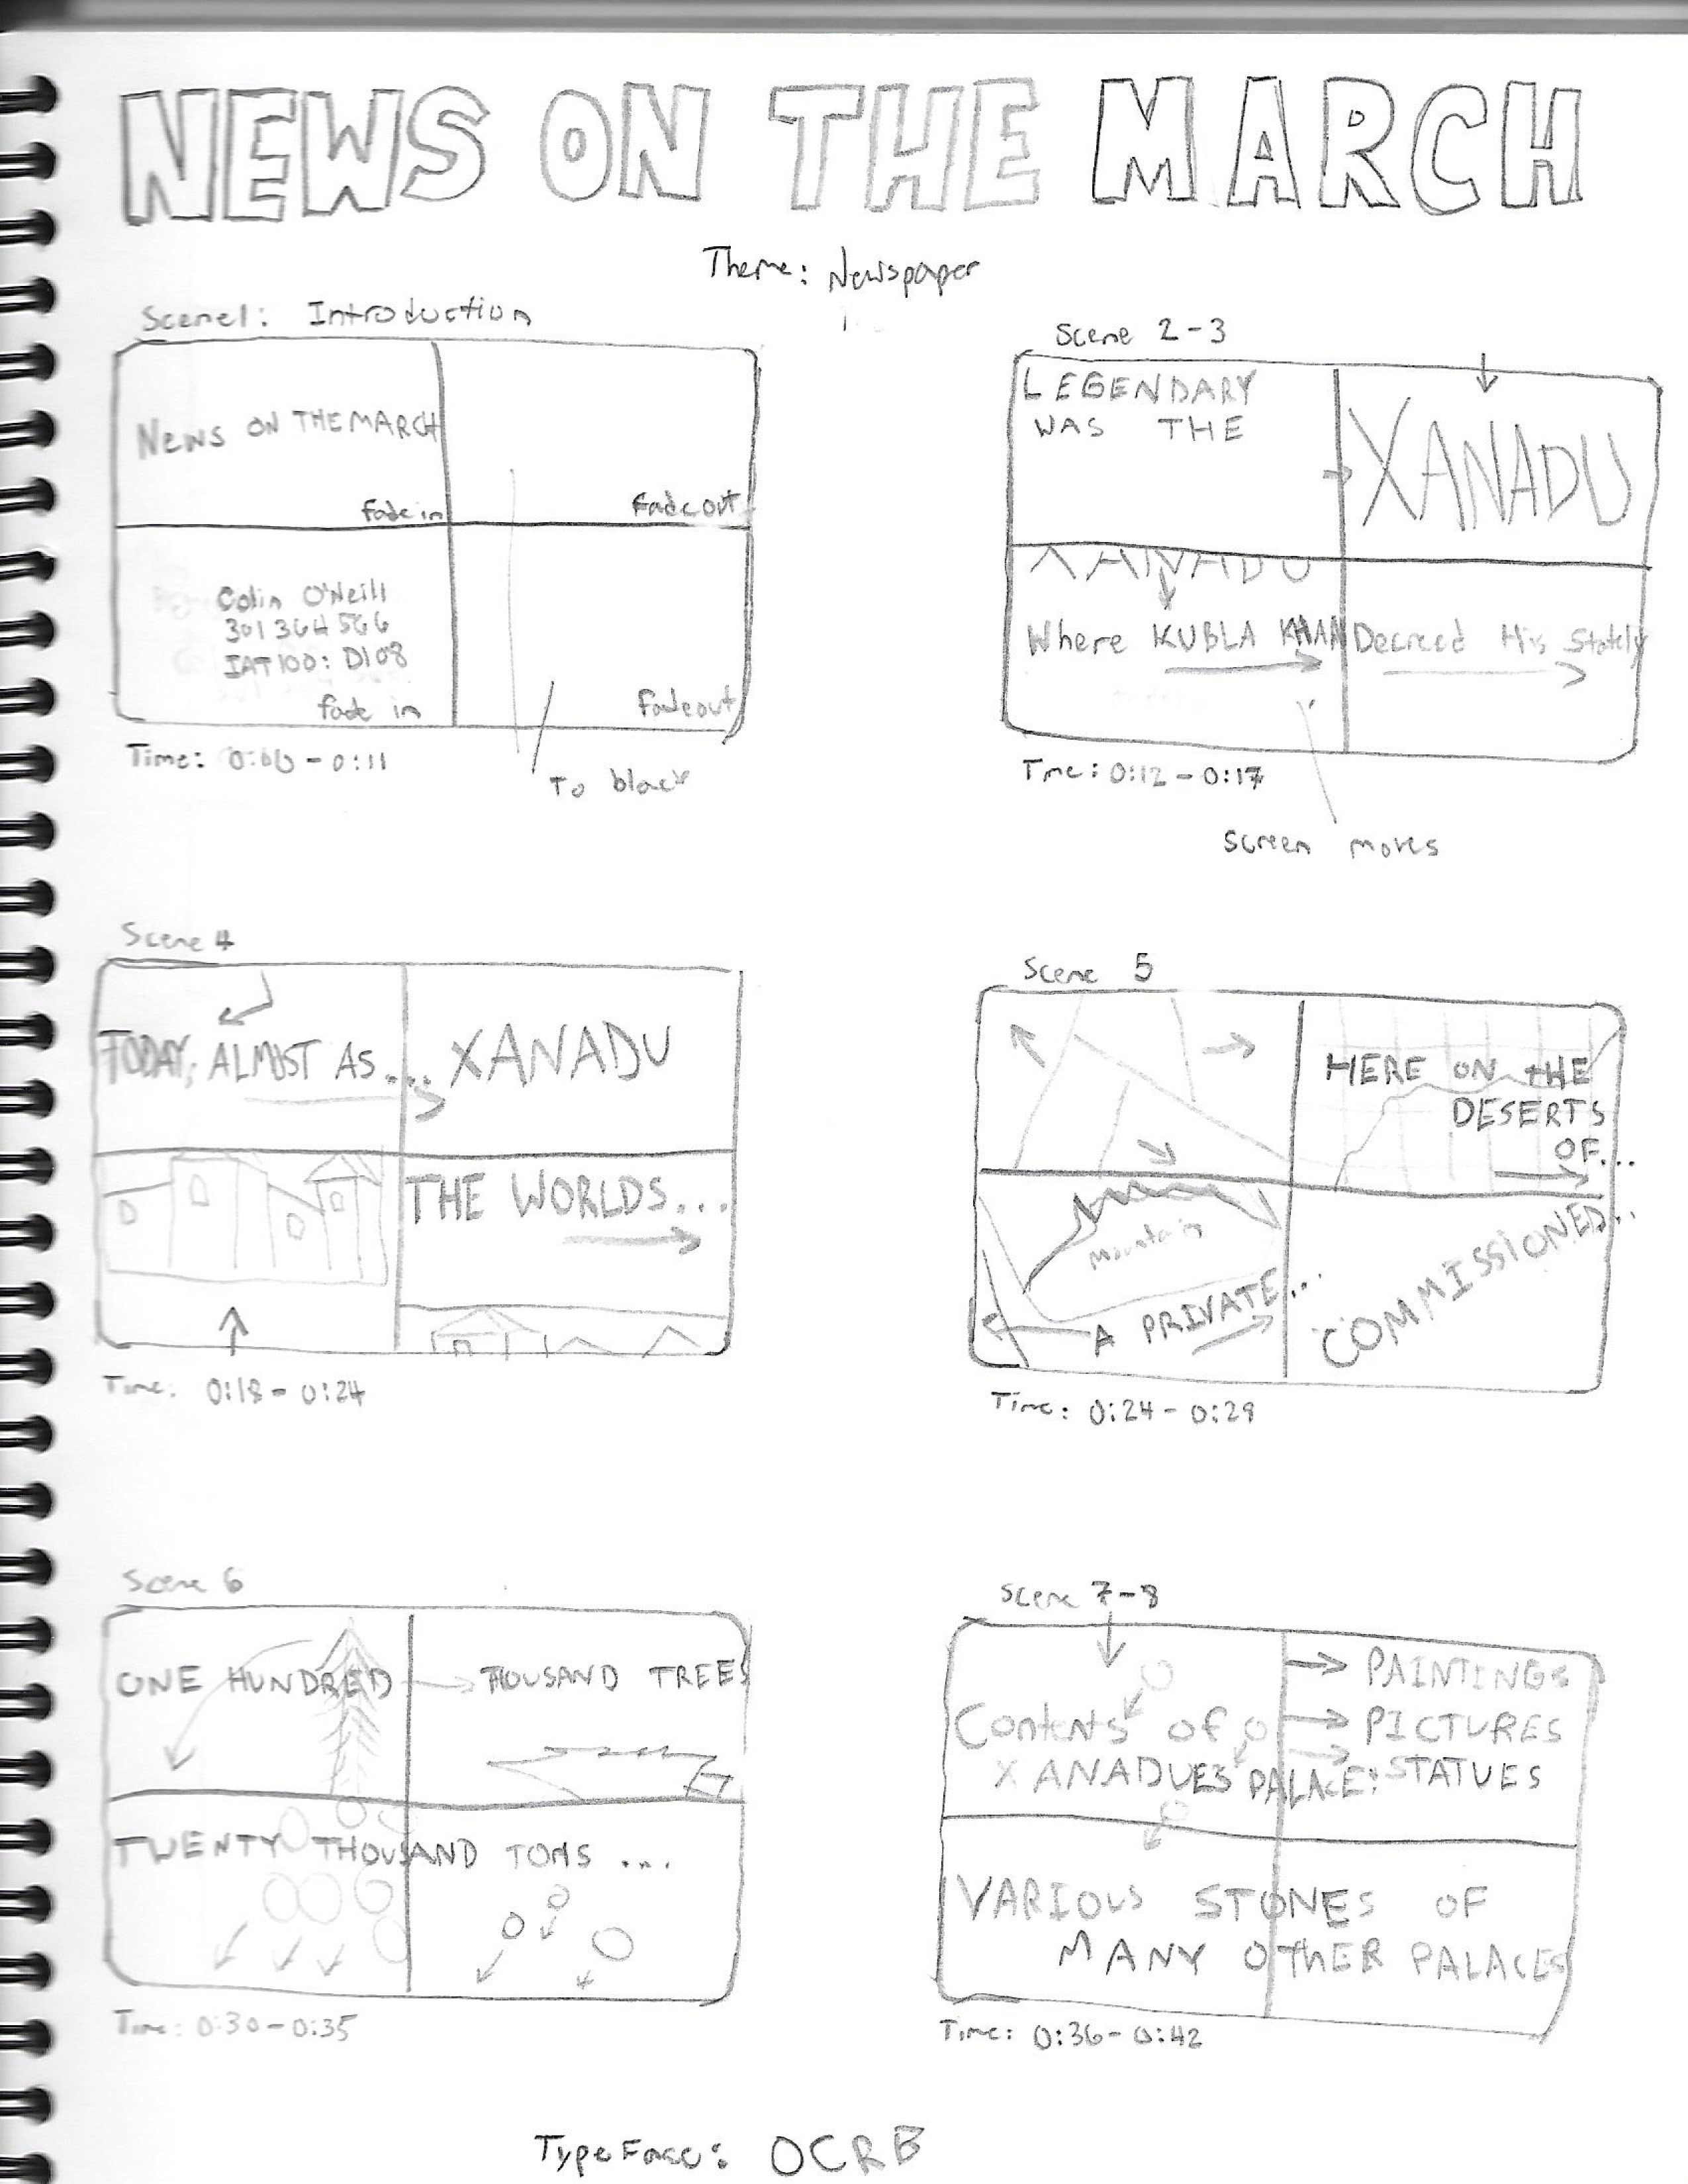 NEWS ON THE MARCH
Theme: Newspaper
Scene1: Introduction
NEWS ON THE MARCH
fade in
Fadeout
Colin O'Neill
301364566
IAT100: D108
fade in
Fadeout
Time: 0:00 - 0:11
To black
Scene 2-3
LEGENDARY
WAS THE
XANADU
XANADU
Where KUBLA KHAN Decreed His Stately
Time: 0:12 - 0:17
Screen moves
Scene 4
TODAY, ALMOST AS... XANADU
THE WORLDS...
Time: 0:18 - 0:24
Scene 5
HERE ON THE
DESERTS
OF...
Mountain
A PRIVATE...
COMMISSIONED...
Time: 0:24 - 0:29
Scene 6
ONE HUNDRED THOUSAND TREES
TWENTY THOUSAND TONS ...
Time: 0:30 - 0:35
Scene 7-8
Contents of
XANADUES PALACE:
PAINTINGS
PICTURES
STATUES
VARIOUS STONES OF
MANY OTHER PALACES
Time: 0:36 - 0:42
TypeFace: OCRB